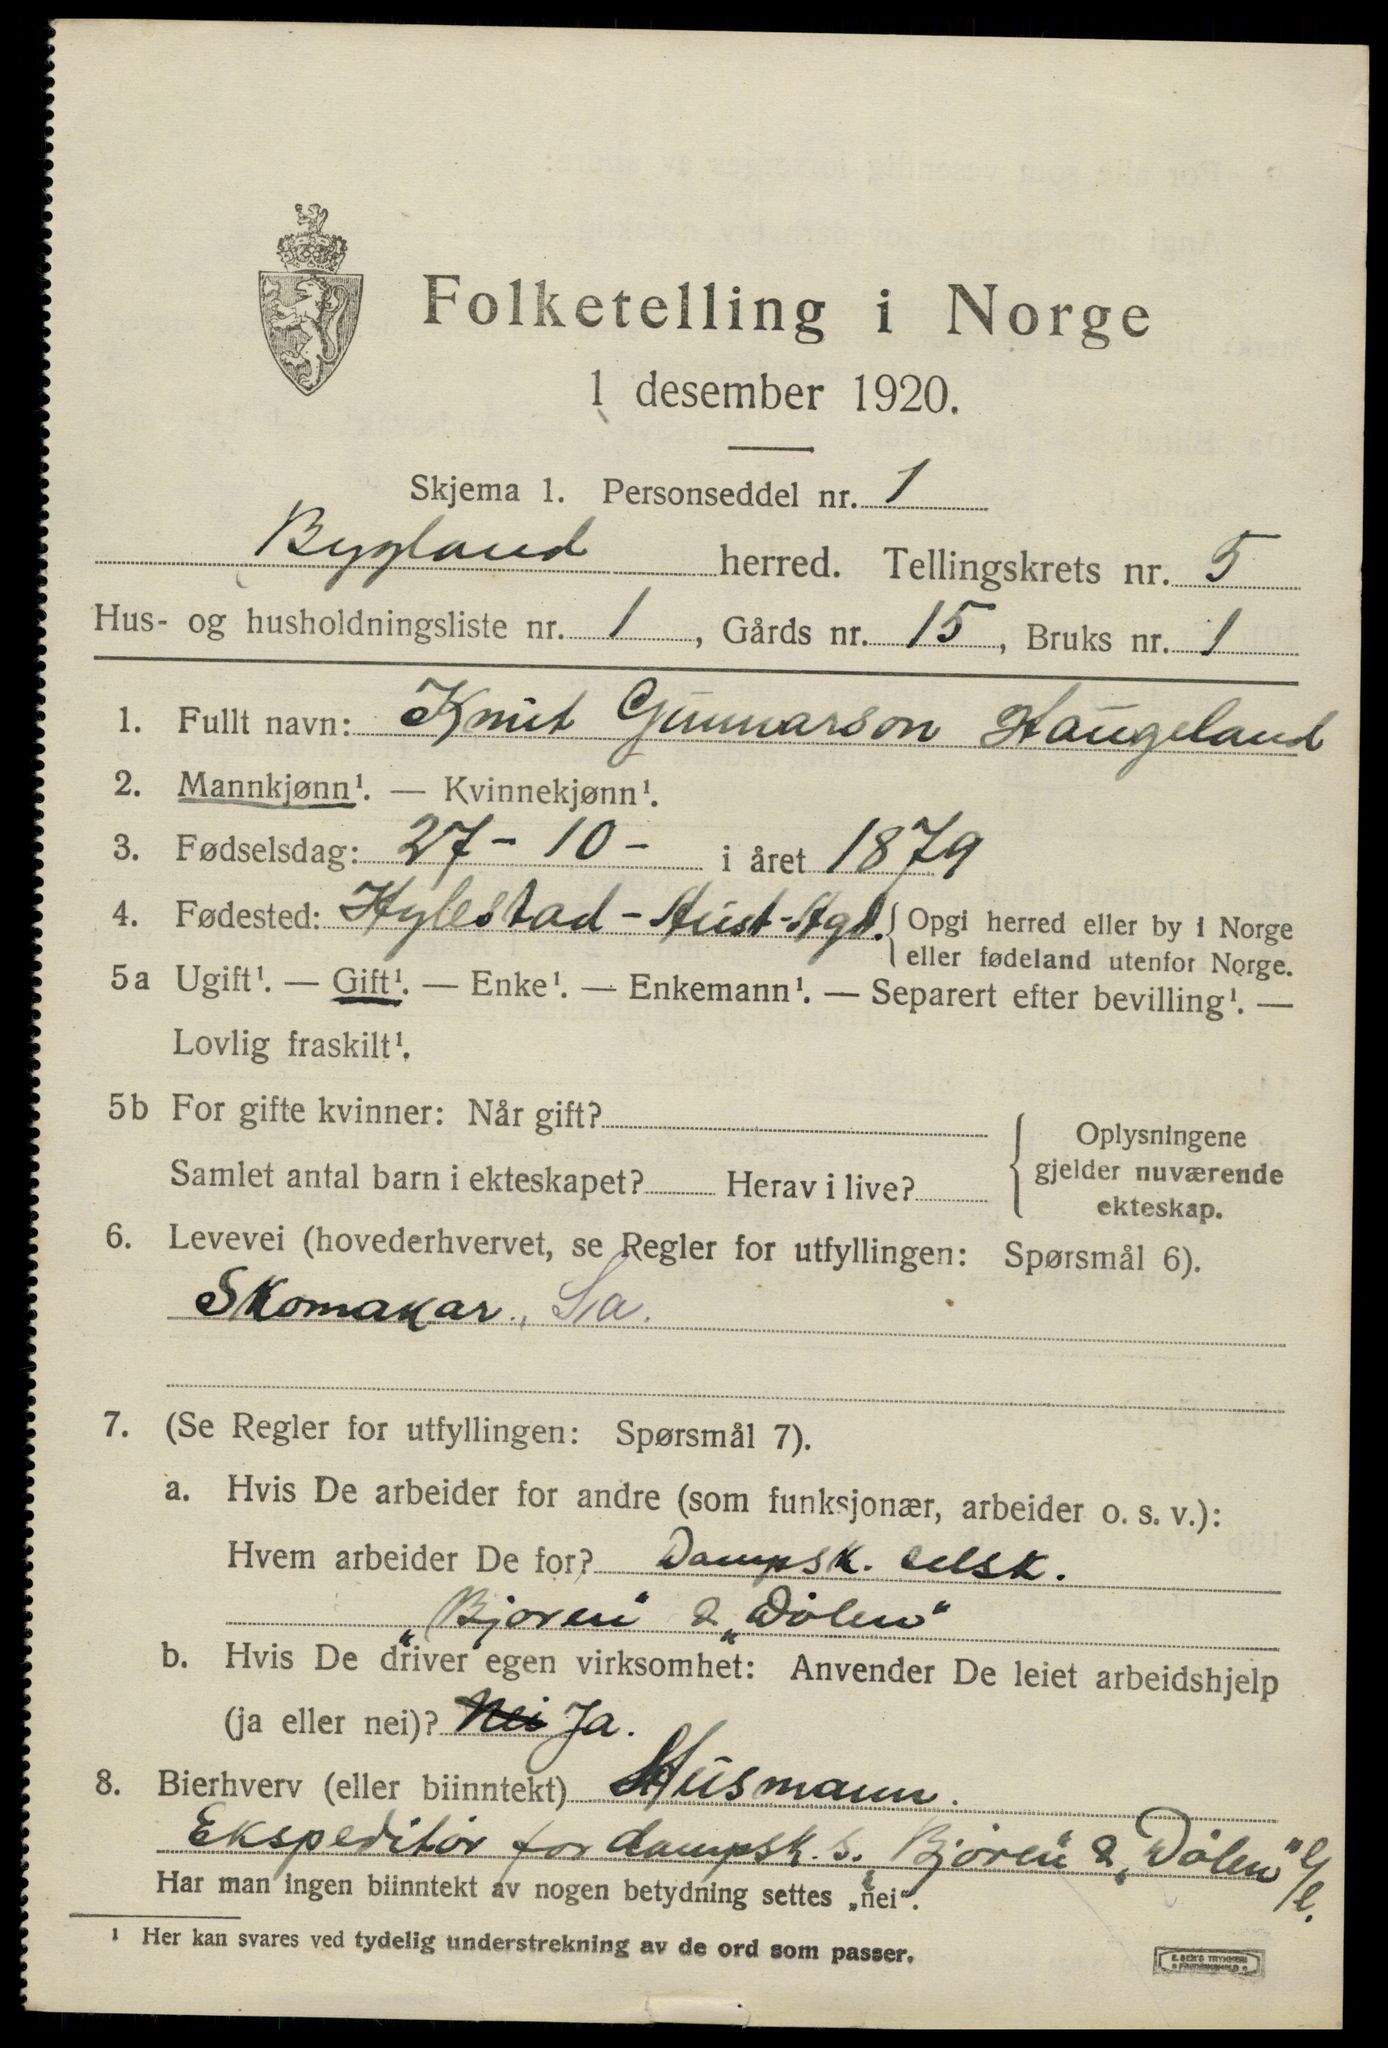 Folketelling i Norge
1 desember 1920.
Skjema 1. Personseddel nr. 1
Bygland herred. Tellingskrets nr. 5
Hus- og husholdningsliste nr. 1, Gårds nr. 15, Bruks nr. 1
1. Fullt navn: Knut Gunnarson Haugeland
2. Mannkjønn¹. — Kvinnekjønn¹.
3. Fødselsdag: 27 - 10 - i året 1879
4. Fødested: Hylestad - Aust-Agd. { Opgi herred eller by i Norge
eller fødeland utenfor Norge.
5a Ugift¹. — Gift¹. — Enke¹. — Enkemann¹. — Separert efter bevilling¹. —
Lovlig fraskilt¹.
5b For gifte kvinner: Når gift?
Samlet antal barn i ekteskapet? Herav i live?
{ Oplysningene
gjelder nuværende
ekteskap.
6. Levevei (hovederhvervet, se Regler for utfyllingen: Spørsmål 6).
Skomakar, Sa.
7. (Se Regler for utfyllingen: Spørsmål 7).
a. Hvis De arbeider for andre (som funksjonær, arbeider o. s. v.):
Hvem arbeider De for? Dampsk. selsk.
„Bjoren" & „Dölen"
b. Hvis De driver egen virksomhet: Anvender De leiet arbeidshjelp
(ja eller nei)? Nei Ja.
8. Bierhverv (eller biinntekt) Husmann.
Ekspeditör for dampsk. s. „Bjoren" & „Dölen"
Har man ingen biinntekt av nogen betydning settes „nei".
¹ Her kan svares ved tydelig understrekning av de ord som passer.